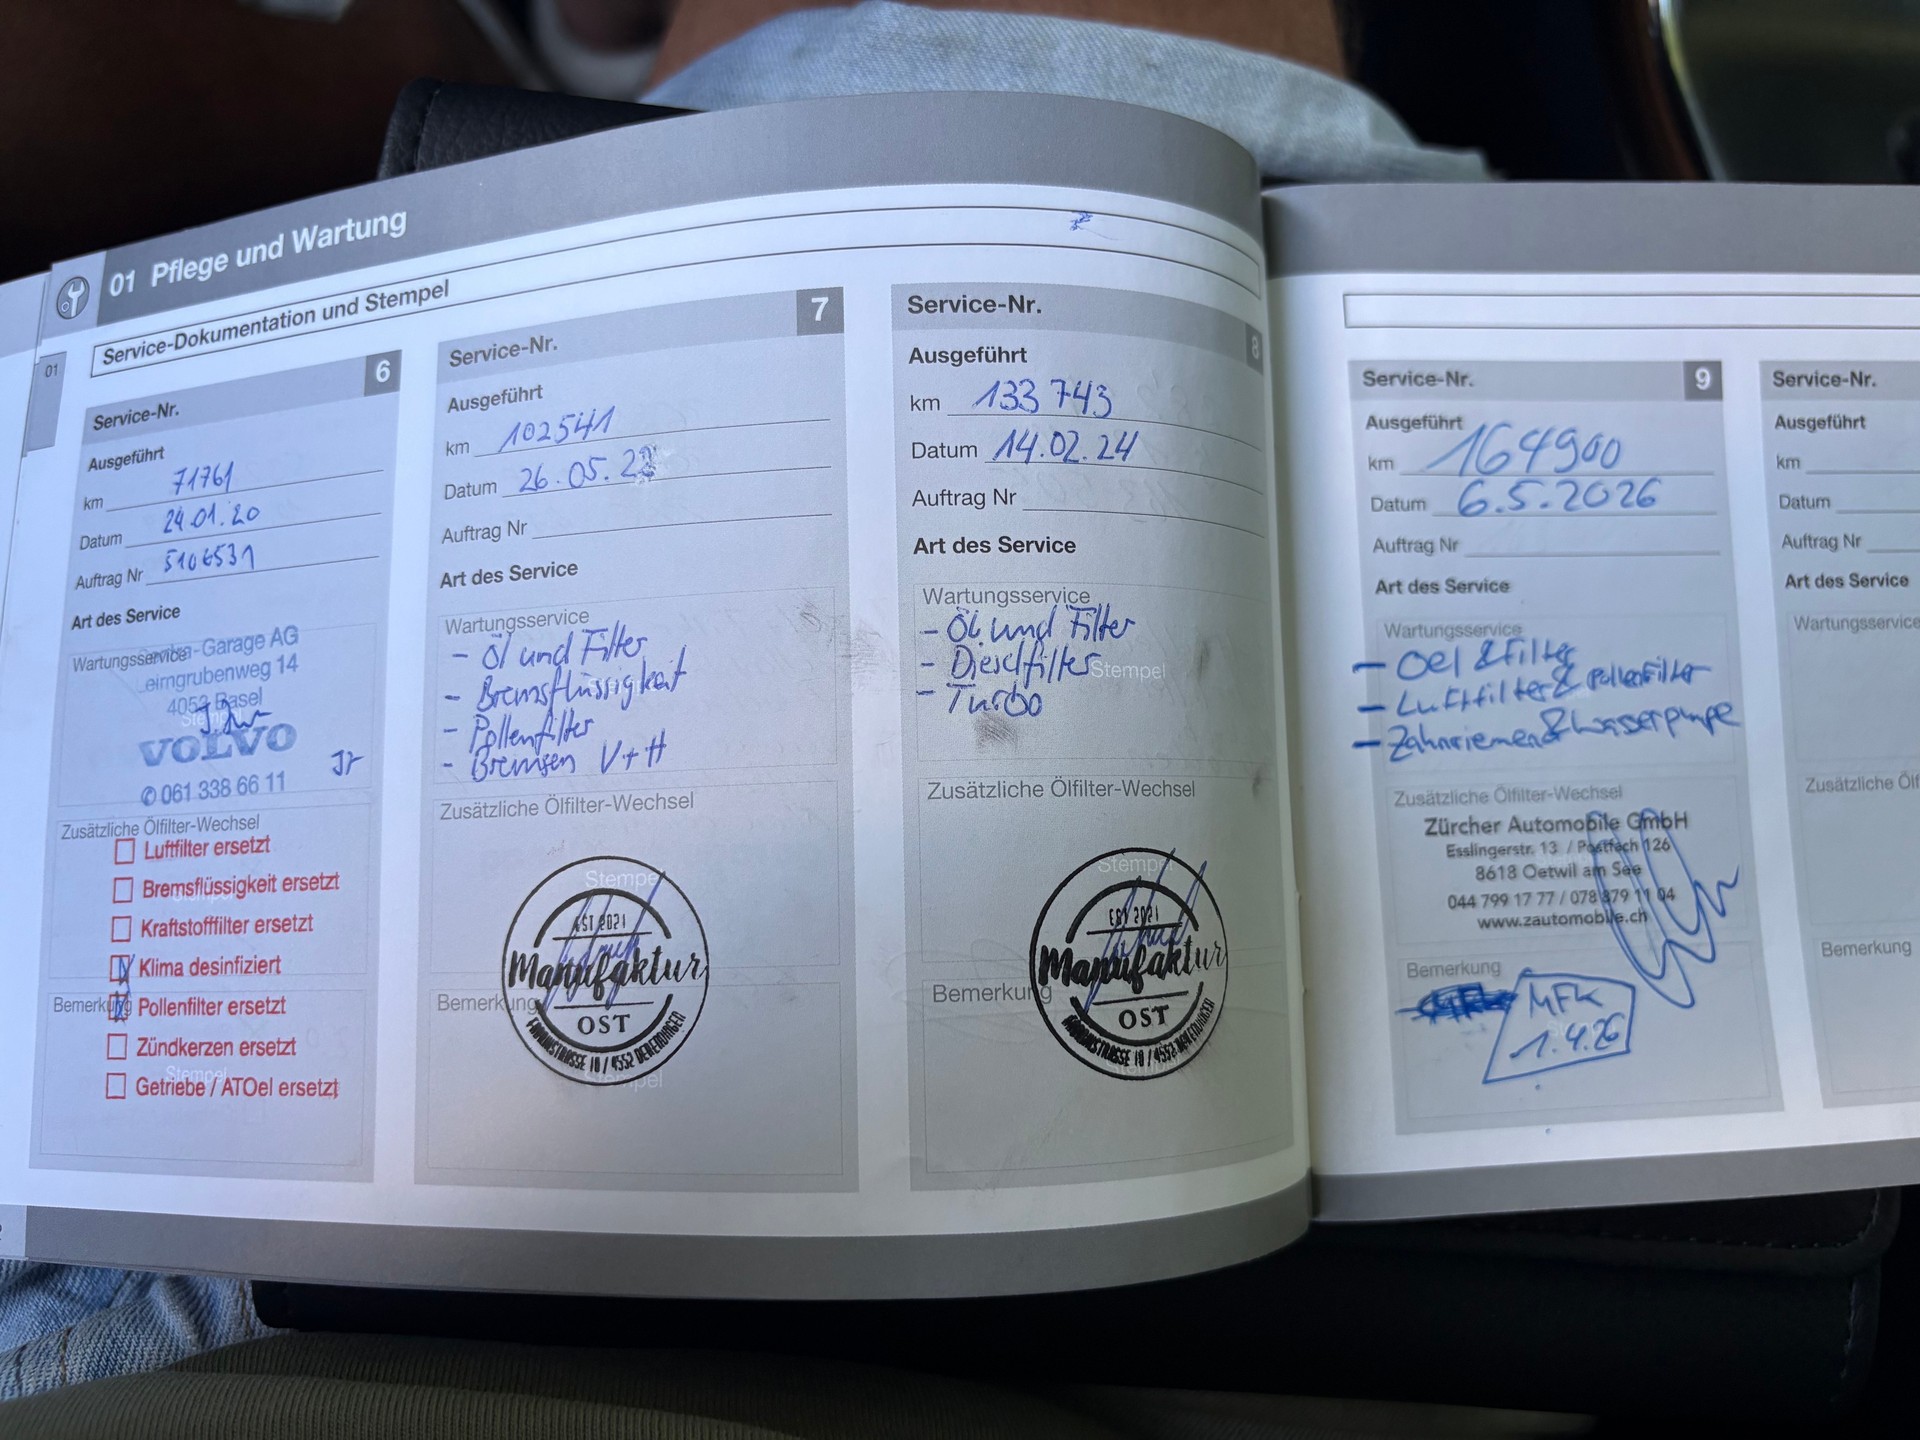 01 Pflege und Wartung
Service-Dokumentation und Stempel
01
Service-Nr. 6
Ausgeführt
km 71761
Datum 24.01.20
Auftrag Nr 5106531
Art des Service
Wartungsservice
-Garage AG
Leimgrubenweg 14
4053 Basel
VOLVO
✆ 061 338 66 11
Zusätzliche Ölfilter-Wechsel
Luftfilter ersetzt
Bremsflüssigkeit ersetzt
Stempel
Kraftstofffilter ersetzt
Klima desinfiziert
Bemerkung
Pollenfilter ersetzt
Zündkerzen ersetzt
Stempel
Getriebe / ATOel ersetzt
Service-Nr. 7
Ausgeführt
km 102541
Datum 26.05.22
Auftrag Nr
Art des Service
Wartungsservice
- Öl und Filter
- Bremsflüssigkeit
- Pollenfilter
- Bremsen V+H
Zusätzliche Ölfilter-Wechsel
Stempel
EST 2021
Manufaktur
OST
Bemerkung
/ 4552 DERENDINGEN
Stempel
Service-Nr. 8
Ausgeführt
km 133 743
Datum 14.02.24
Auftrag Nr
Art des Service
Wartungsservice
- Öl und Filter
- Dieselfilter
Stempel
- Turbo
Zusätzliche Ölfilter-Wechsel
Stempel
EST 2021
Manufaktur
OST
Bemerkung
/ 4552 DERENDINGEN
Stempel
Service-Nr. 9
Ausgeführt
km 164900
Datum 6.5.2026
Auftrag Nr
Art des Service
Wartungsservice
- Oel & Filter
- Luftfilter & Pollenfilter
- Zahnriemen & Wasserpumpe
Zusätzliche Ölfilter-Wechsel
Zürcher Automobile GmbH
Esslingerstr. 13 / Postfach 126
8618 Oetwil am See
044 799 17 77 / 078 879 11 04
www.zautomobile.ch
Bemerkung
MFK
1.4.26
Service-Nr.
Ausgeführt
km
Datum
Auftrag Nr
Art des Service
Wartungsservice
Zusätzliche Ölf
Bemerkung